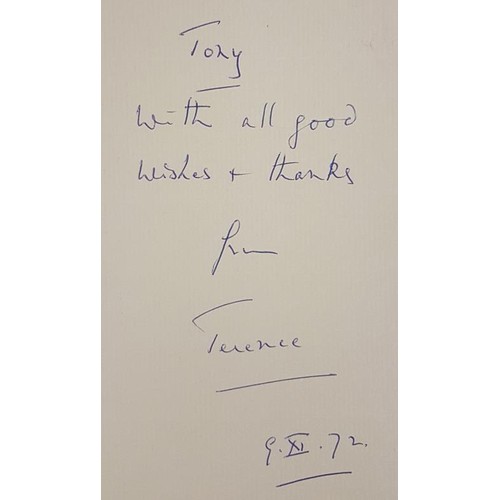 Tony
With all good
wishes + thanks
from
Terence
9.XI.72.